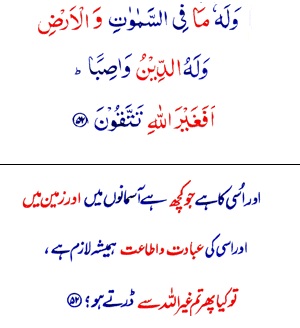 وَلَهٗ مَا فِی السَّمٰوٰتِ وَ الْاَرْضِ
وَلَهُ الدِّیْنُ وَاصِبًا ؕ
اَفَغَیْرَ اللّٰهِ تَتَّقُوْنَ ﴿۵۲﴾
اور اُسی کا ہے جو کچھ ہے آسمانوں میں اور زمین میں
اور اسی کی عبادت و اطاعت ہمیشہ لازم ہے ،
تو کیا پھر تم غیر اللہ سے ڈرتے ہو؟ ﴿۵۲﴾